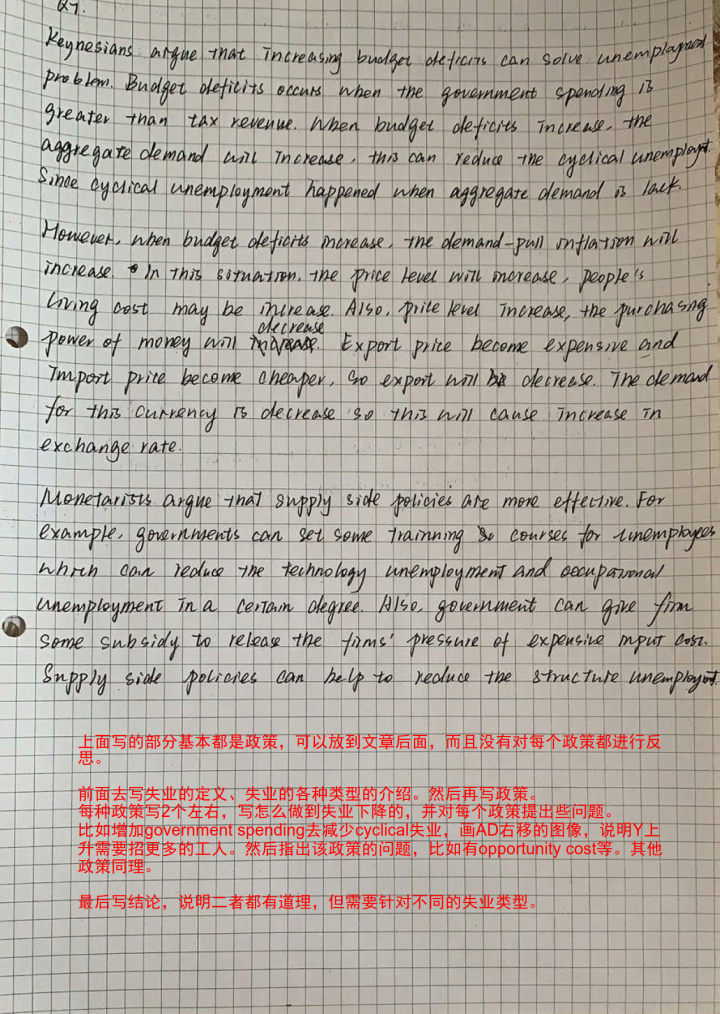 Q7.
Keynesians argue that increasing budget deficits can solve unemployment
problem. Budget deficits occurs when the government spending is
greater than tax revenue. When budget deficits increase, the
aggregate demand will increase, this can reduce the cyclical unemployt.
Since cyclical unemployment happened when aggregate demand is lack.
However, when budget deficits increase, the demand-pull inflation will
increase. In this situation, the price level will increase, people's
living cost may be increase. Also, price level increase, the purchasing
decrease
power of money will increase. Export price become expensive and
Import price become cheaper, so export will be decrease. The demand
for this currency is decrease so this will cause increase in
exchange rate.
Monetarists argue that supply side policies are more effective. For
example, governments can set some trainning courses for unemployees
which can reduce the technology unemployment and occupational
unemployment in a certain degree. Also, government can give firm
some subsidy to release the firms' pressure of expensive input cost.
Supply side policies can help to reduce the structure unemployment.
上面写的部分基本都是政策，可以放到文章后面，而且没有对每个政策都进行反
思。
前面去写失业的定义、失业的各种类型的介绍。然后再写政策。
每种政策写2个左右，写怎么做到失业下降的，并对每个政策提出些问题。
比如增加government spending去减少cyclical失业，画AD右移的图像，说明Y上
升需要招更多的工人。然后指出该政策的问题，比如有opportunity cost等。其他
政策同理。
最后写结论，说明二者都有道理，但需要针对不同的失业类型。